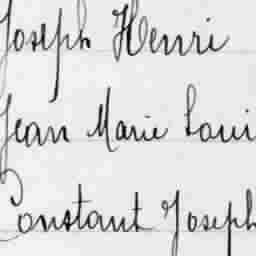 Joseph Henri
Jean Marie Loui
Constant Joseph